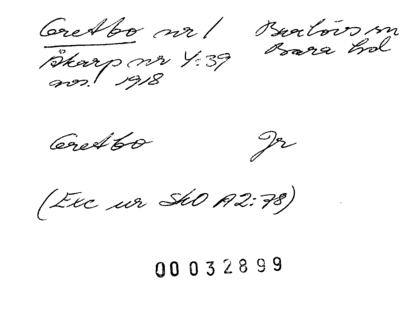 Gretbo nr 1 Burlövs sn
Åkarp nr 4:39 Bara hd
nov. 1918
Gretbo Jr
(Exc ur SkO A2:78)
00032899